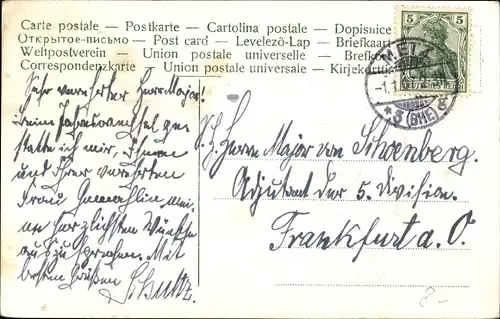 Carte postale — Postkarte — Cartolina postale — Dopisnice
Открытое-письмо — Post card — Levelező-Lap — Briefkaart
Weltpostverein — Union postale universelle — Brefkort
Correspondenzkarte — Union postale universale — Kirjekortti
5 5
METZ
-1.1
* 5 (BHF) g
Sehr verehrter Herr Major!
Beim Jahreswechsel ge-
statte ich mir, Ihnen
und Ihrer verehrten
Frau Gemahlin mei-
ne herzlichsten Wünsche
auszusprechen. Mit
besten Grüßen
Schultz.
Herrn Major von Schoenberg.
Adjutant der 5. Division.
Frankfurt a. O.
8-